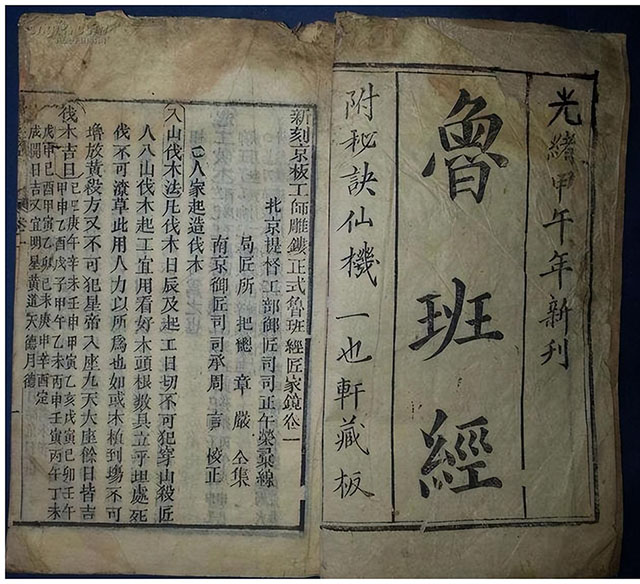 光緒甲午年新刊
魯班經
附秘訣仙機 一也軒藏板
新刻京板工師雕鏤正式魯班經匠家鏡卷一
北京提督工部御匠司司正午榮彙線
局匠所把總章嚴全集
南京御匠司司承周言校正
人家起造伐木
入山伐木法凡伐木日辰及起工日切不可犯穿山殺匠
人入山伐木起工宜用看好木頭根數具立平坦處死
伐不可潦草此用人力以所為也如或木植到塲不可
堆放黃殺方又不可犯星帝八座九天大座餘日皆吉
伐木吉日 己巳庚午辛未壬申甲寅乙亥戊寅己卯壬午
甲申乙酉戊子甲午乙未丙申壬寅丙午丁未
戊申己酉甲寅乙卯己未庚申辛酉定
成開日吉又宜明星黃道天德月德